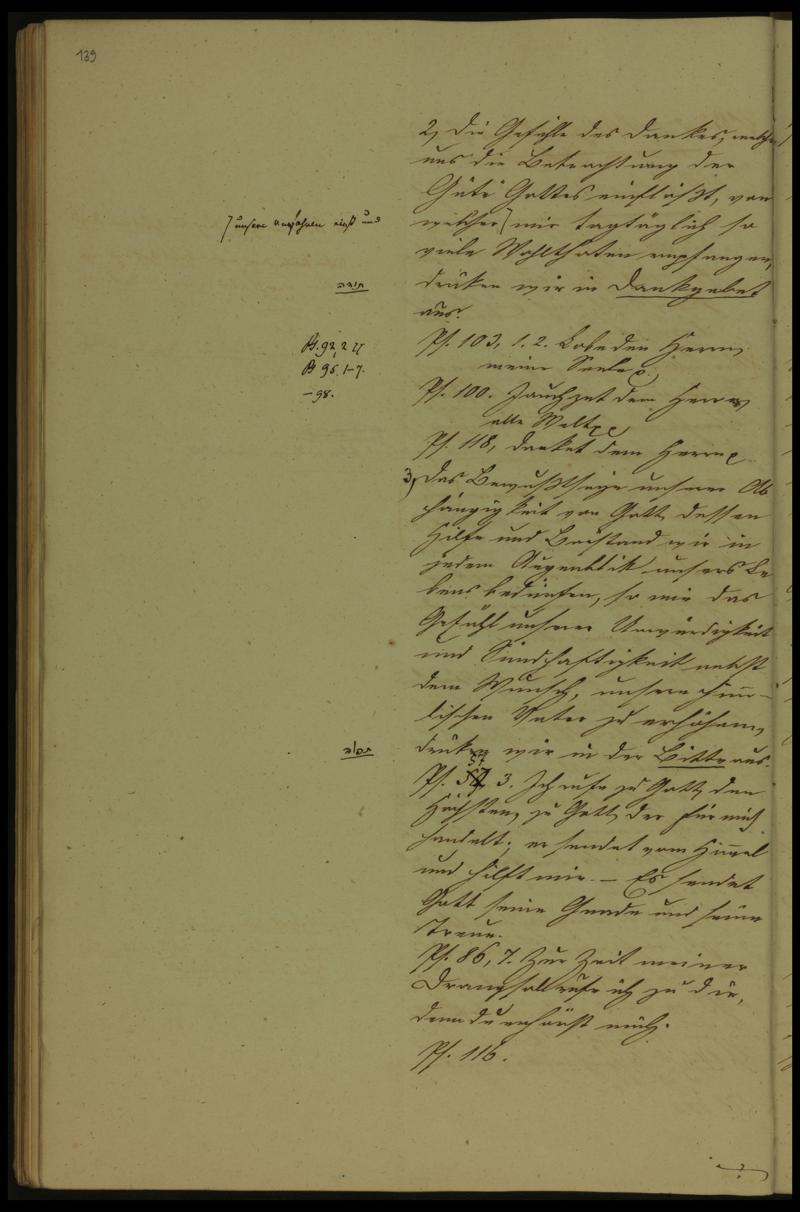 139
2, Die Gefühle des Dankes, welche
uns die Betrachtung der
Güte Gottes einflößt, von
] unsere Vorfahren einst und
welcher ] wir tagtäglich so
viele Wohlthaten empfangen,
תודה
drüken wir im Dankgebet
aus.
Ps. 92, 2 ff
Ps 95, 1-7.
- 98.
Ps. 103, 1. 2. Lobe den Herrn,
meine Seele
Ps. 100. Jauchzet dem Herrn
alle Welt
Ps. 118, danket dem Herrn
3, Das Bewußtseyn unserer Ab
hängigkeit von Gott, dessen
Hilfe und Beistand wir in
jedem Augenblik unsers Le
bens bedürfen, so wie das
Gefühl unserer Unwürdigkeit
und Sündhaftigkeit nebst
dem Wunsch, unsern himm-
lischen Vater zu
תפלה
drüken wir in der Bitte aus.
Ps. 57 3. Ich rufe zu Gott, den
Höchsten, zu Gott, der für mich
handelt; er sendet vom Himmel
und hilft mir. - Es sendet
Gott seine Gnade und seine
Treue.
Ps. 86, 7. Zur Zeit meiner
Drangsal rufe ich zu dir,
denn du erhörst mich.
Ps. 116.